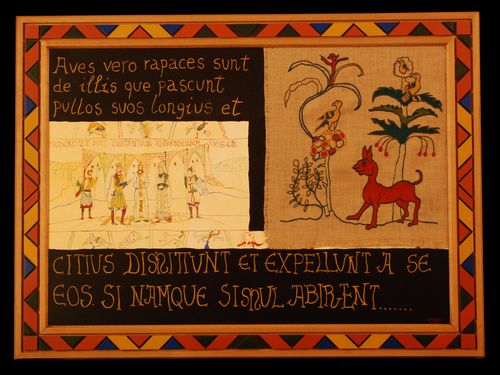 Aves vero rapaces sunt
de illis que pascunt
pullos suos longius et
CITIUS DIMITTUNT ET EXPELLUNT A SE
EOS. SI NAMQUE SIMUL ABIRENT.......